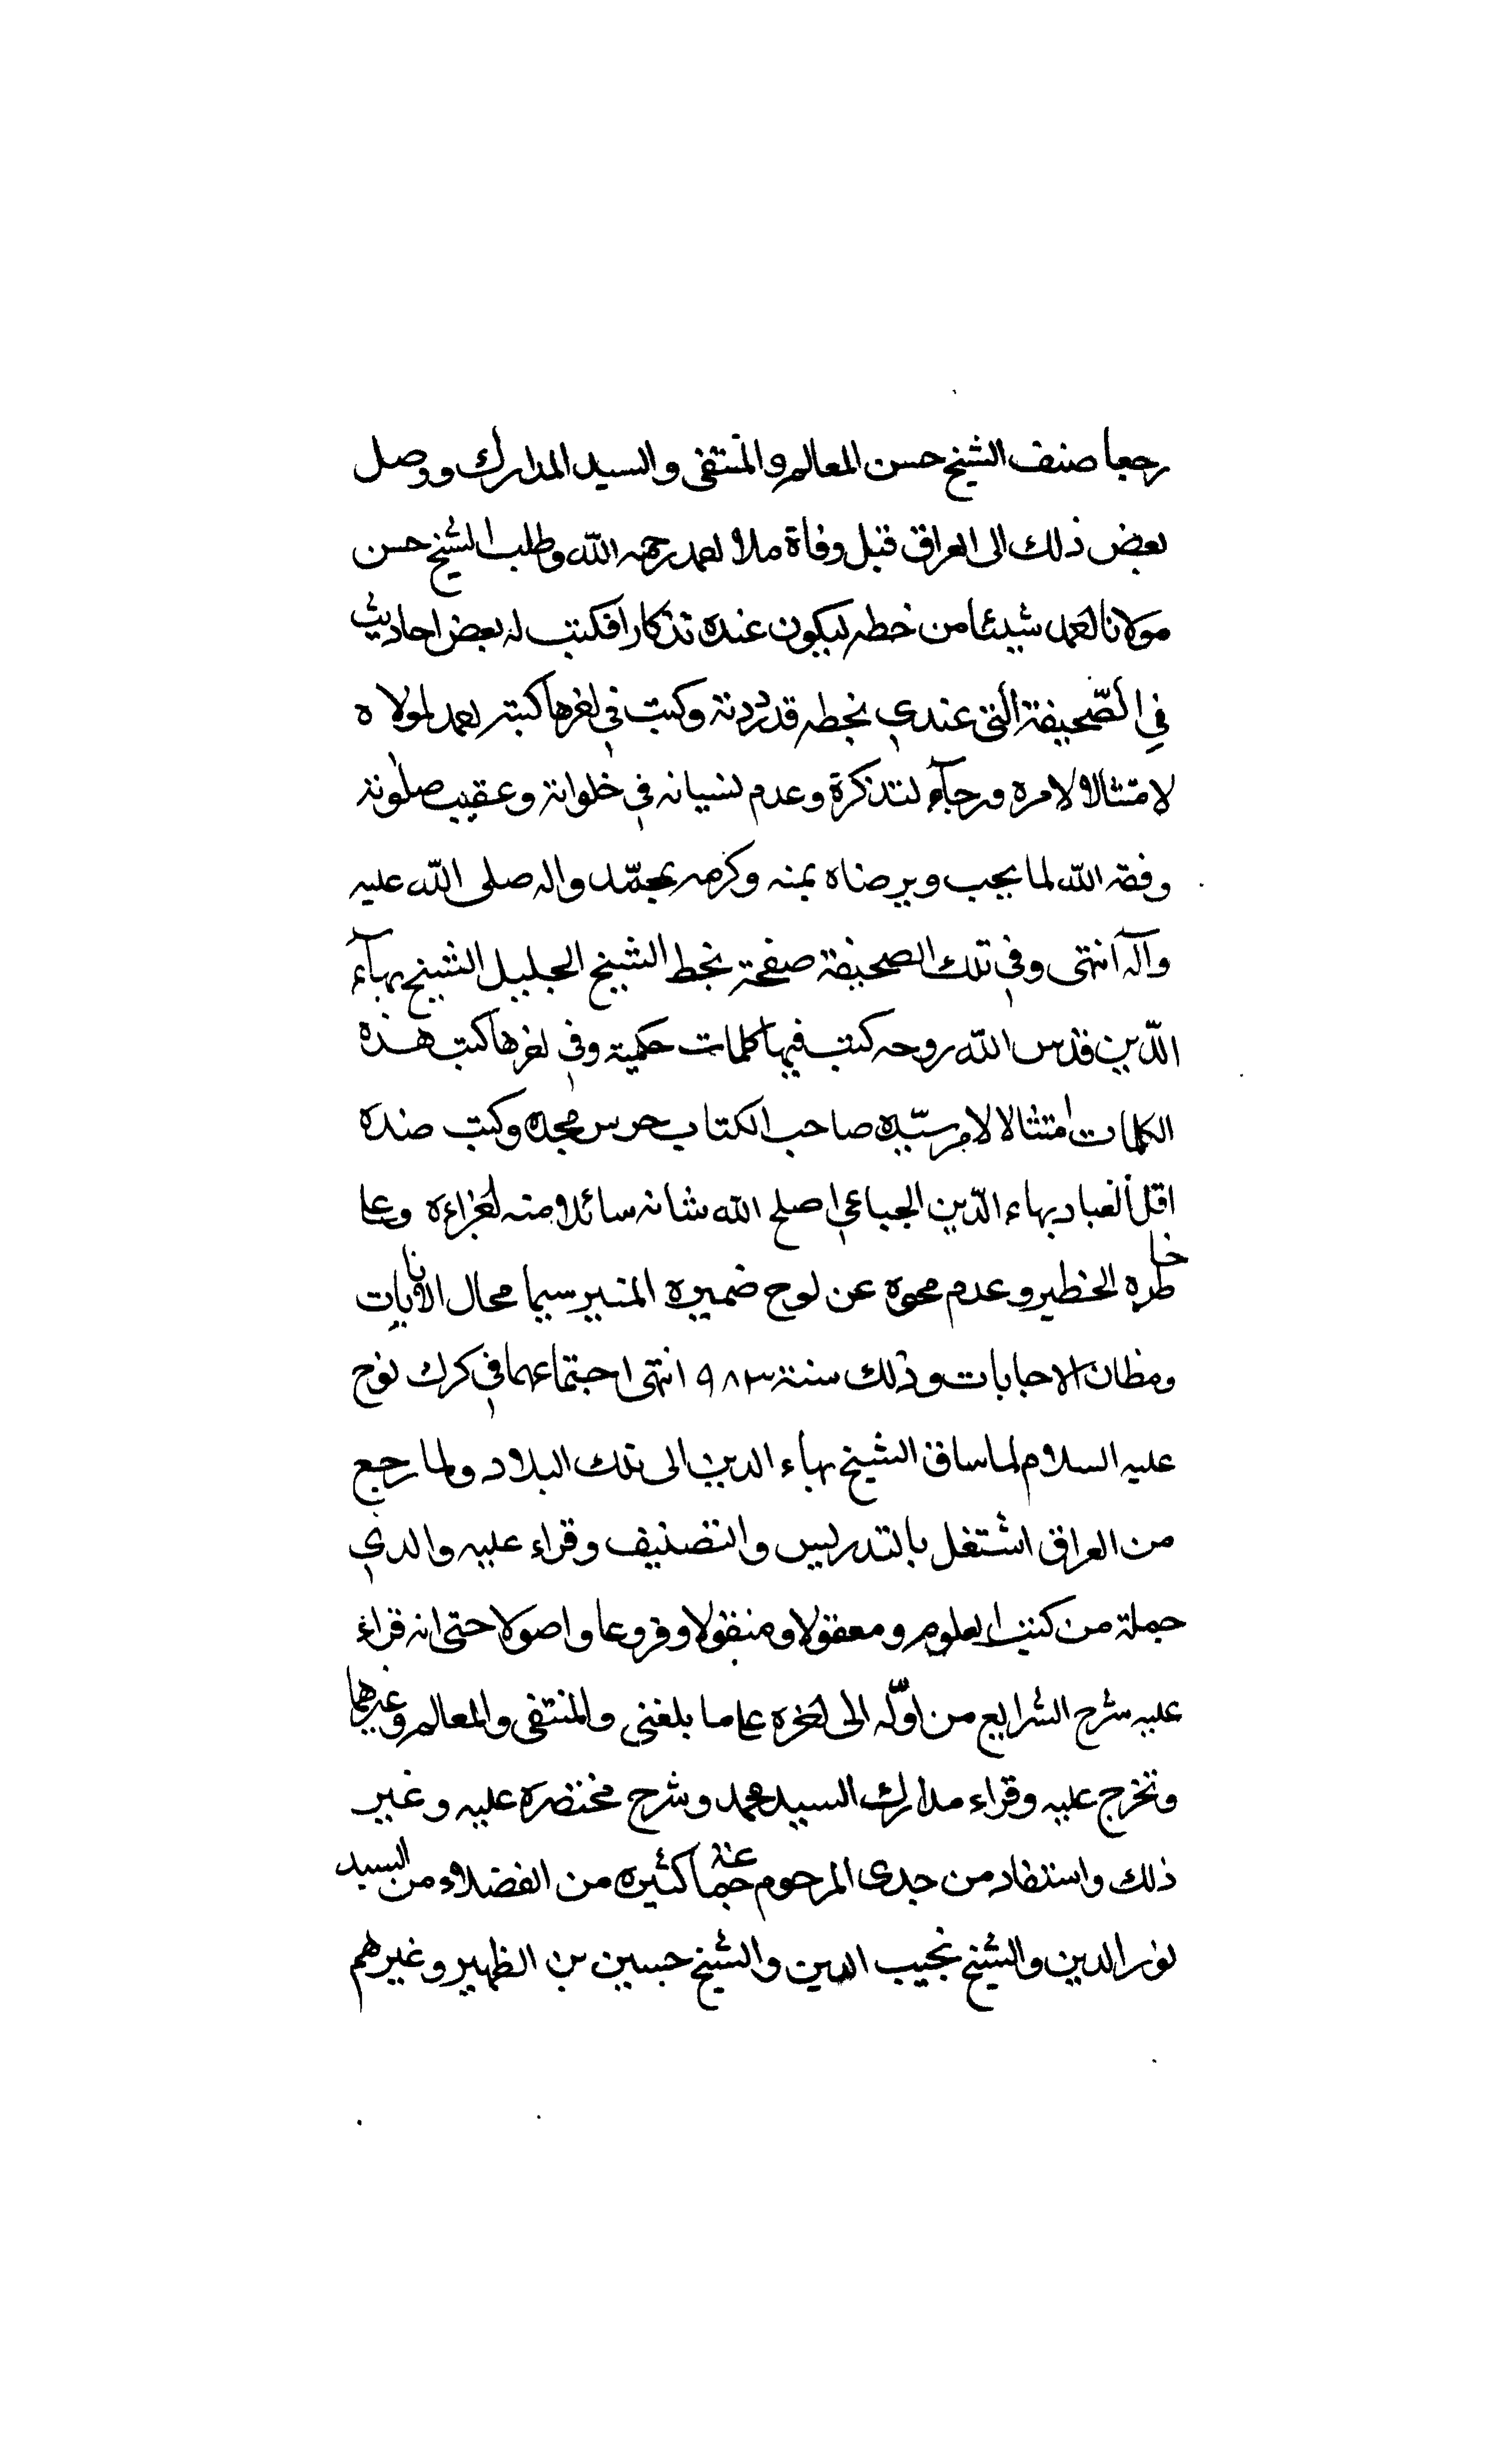 رجعا صنف الشيخ حسن المعالم والمنتقى والسيد المدارك ووصل
بعض ذلك الى العراق قبل وفاة ملا احمد رحمه الله وطلب الشيخ حسن
مولانا احمد شيئا من خطه ليكون عنده تذكارا فكتب له بعض احاديث
في الصّحيفة التي عندي بخطه قد وردته وكتب في اخرها كتبه احمد لمولاه
لامتثالا لامره ورجآء لتذكرة وعدم نسيانه في خلواته وعقيب صلوته
وفقه الله لما يحب ويرضاه بمنه وكرمه بمحمّد واله صلى الله عليه
وآله انتهى وفي تلك الصحيفة صفحة بخط الشيخ الجليل الشيخ بهآء
الدّين قدس الله روحه كتب فيها كلمات حكمية وفي اخرها كتب هذه
الكلمات امتثالا لامر سيّده صاحب الكتاب حرس مجده وكبت ضده
اقل العباد بهاء الدّين الجباعي اصلح الله شانه سائلا منه اجزاءه على
خاطره الخطير وعدم محوه عن لوح ضميره المنير سيما محال الانابات
ومظان الاجابات وذلك سنة ٩٨٣ انتهى اجتماعهما في كرك نوح
عليه السلام لما سافر الشيخ بهاء الدين الى تلك البلاد ولما رجع
من العراق اشتغل بالتدريس والتصنيف وقراء عليه والدي
جملة من كتب العلوم ومعقولا ومنقولا وفروعا واصولا حتى انه قراء
عليه شرح الشرايع من اوّله الى اخره على ما بلغني والمنتقى والمعالم وغيرهما
وتخرج عليه وقراء مدارك السيد محمد وشرح مختصره عليه وغير
ذلك واستفاد من جدى المرحوم جماعة كثيره من الفضلاء من السيد
نور الدين والشيخ نجيب الدين والشيخ حسين بن الظهير وغيرهم